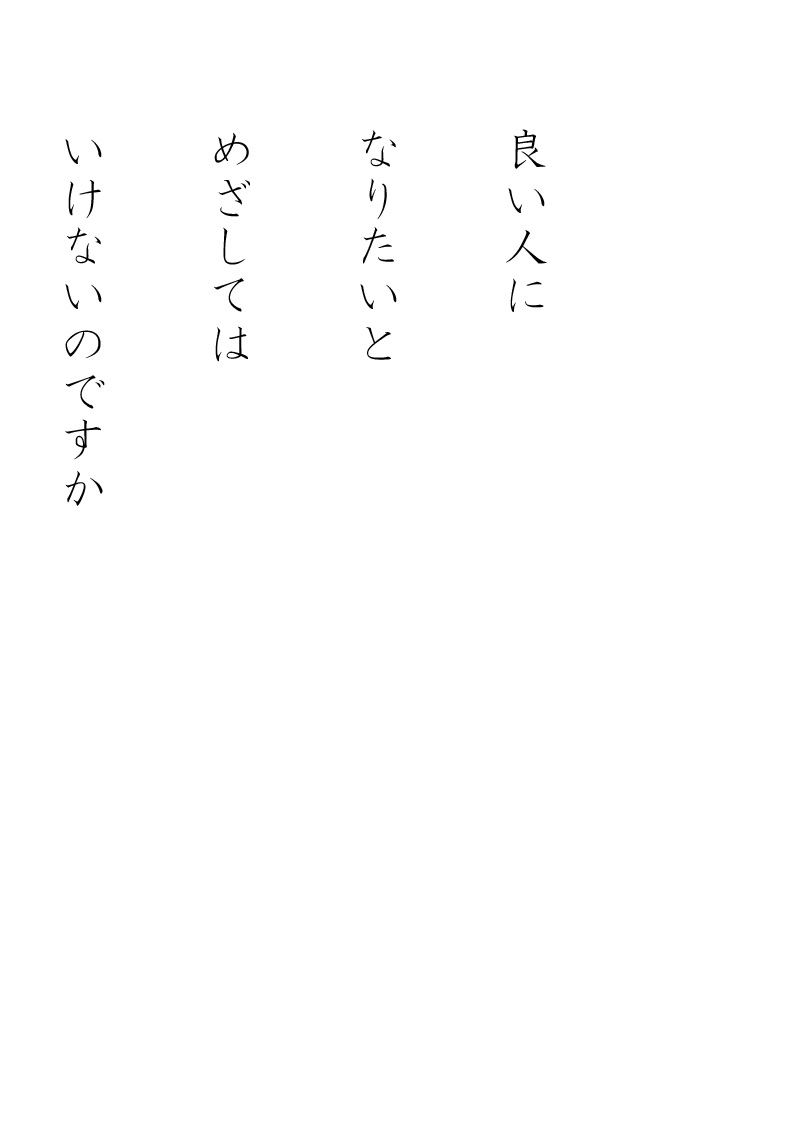 良い人に
なりたいと
めざしては
いけないのですか